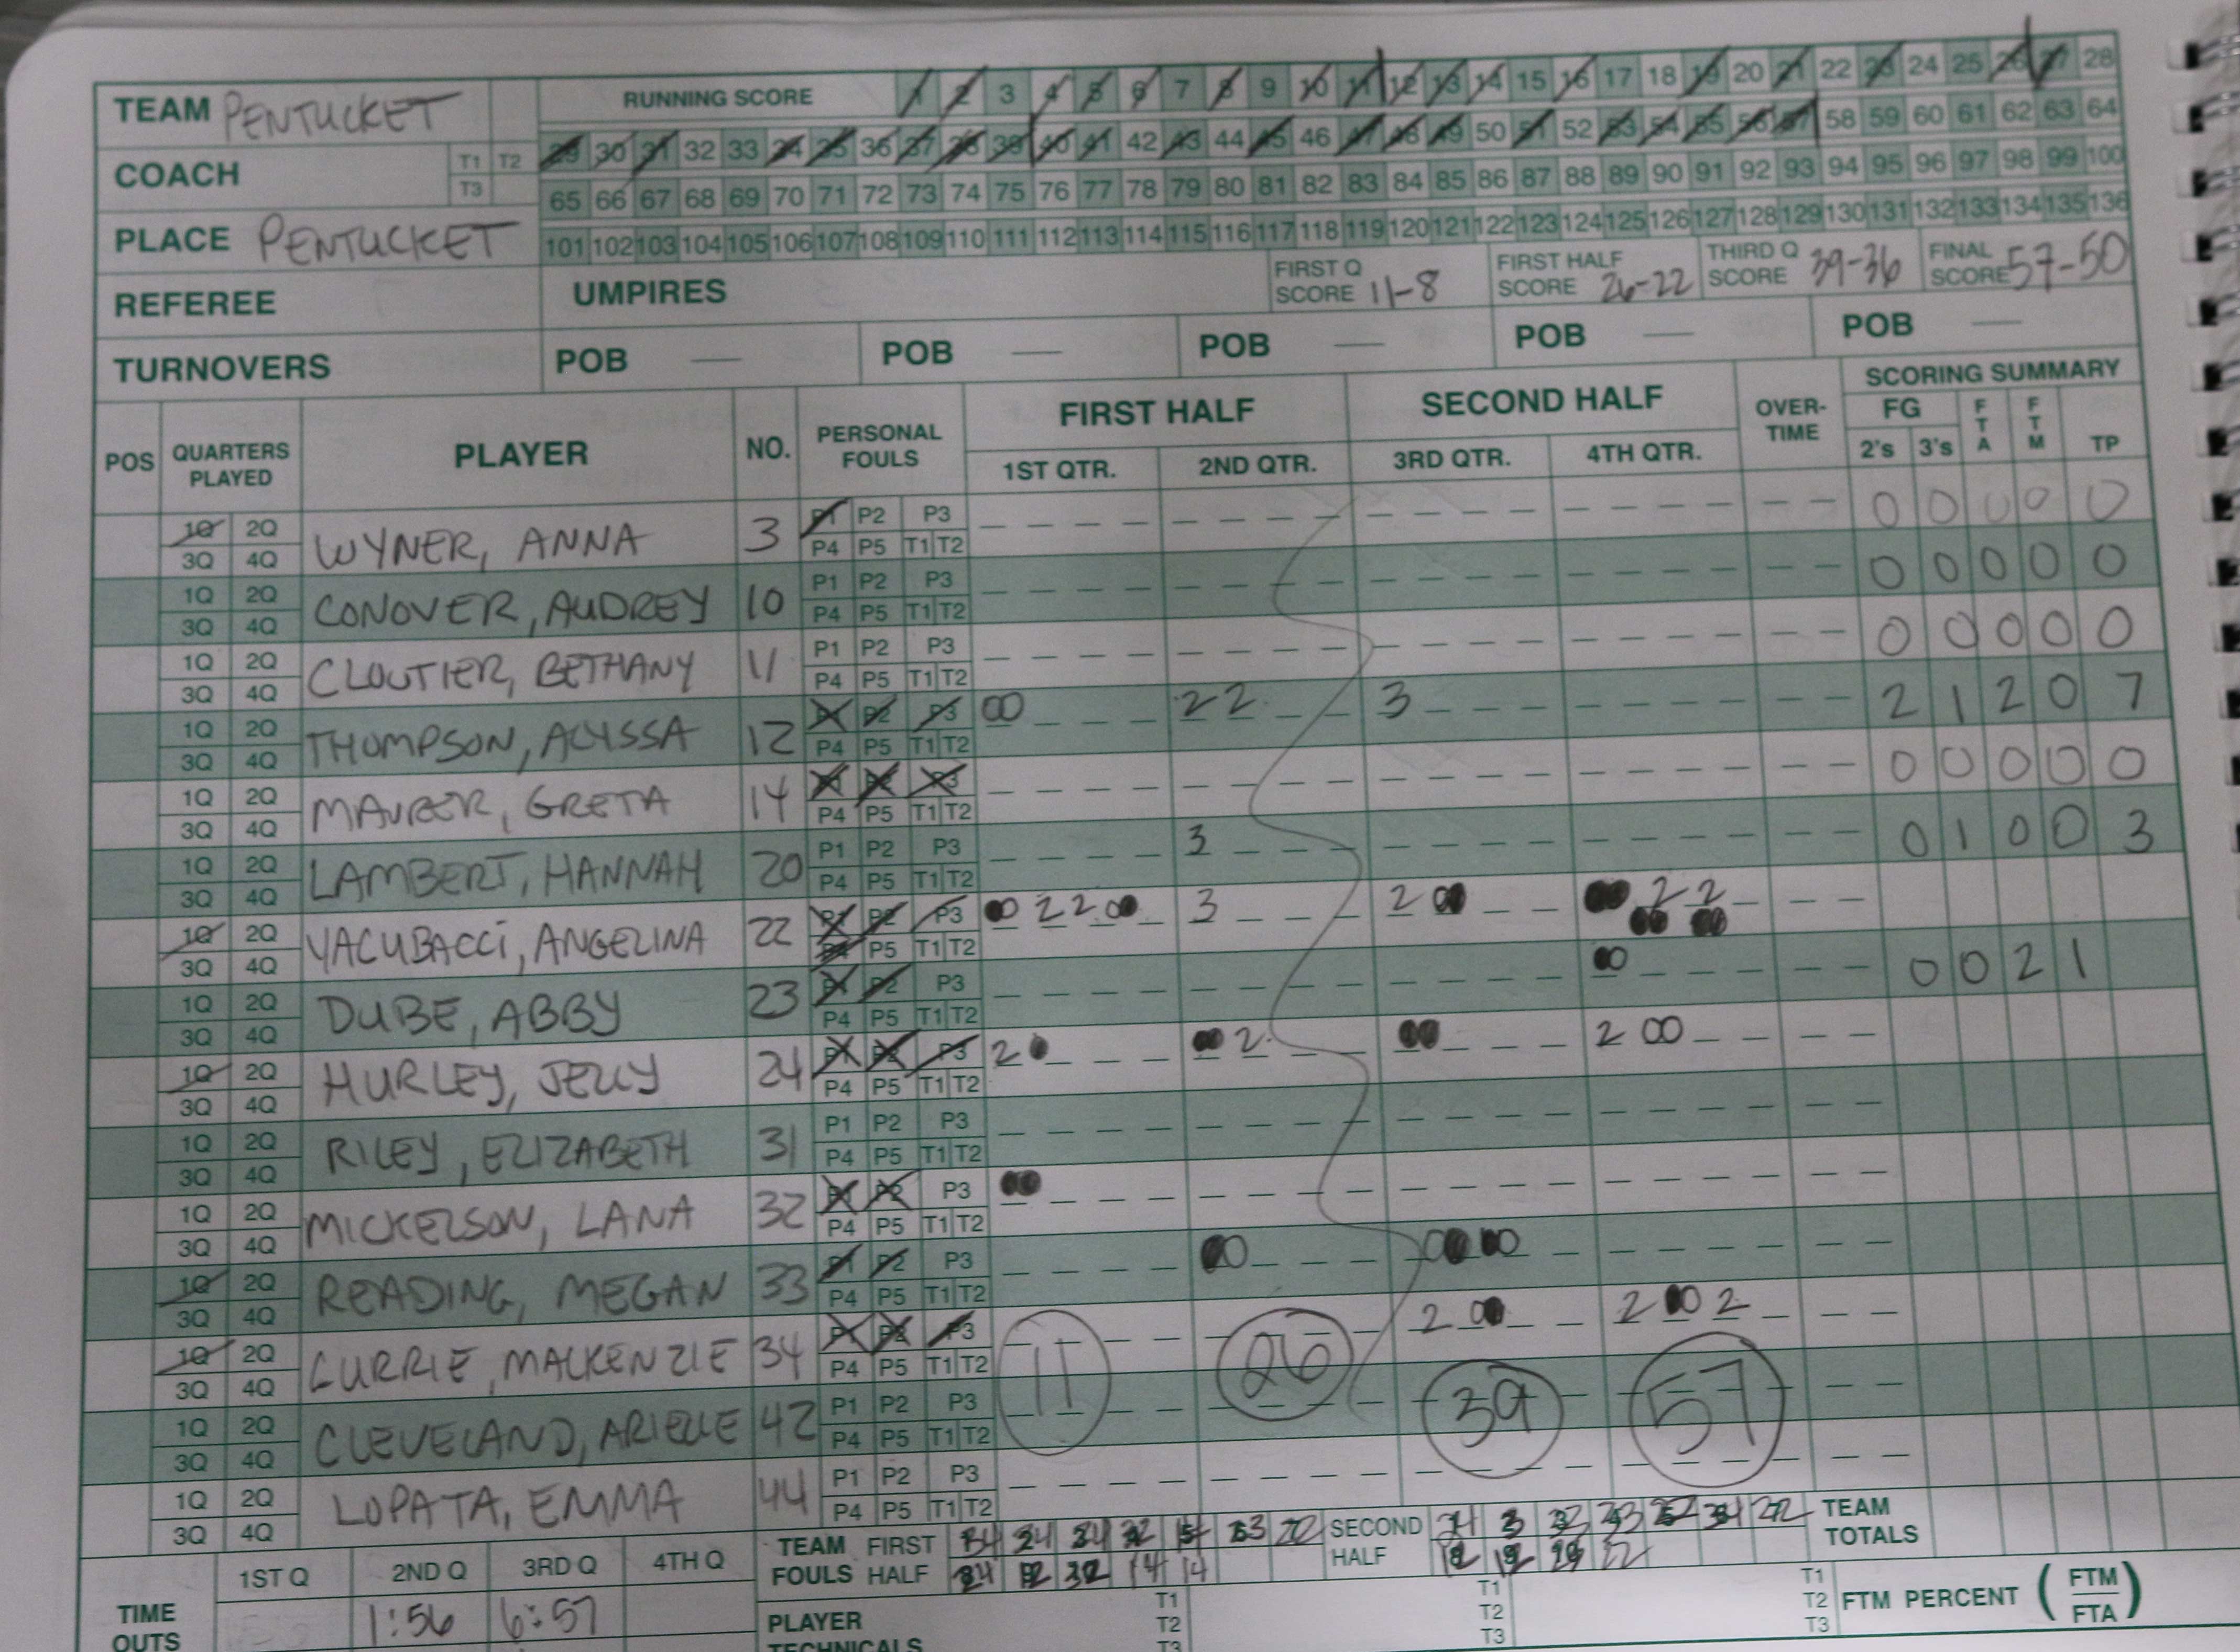 TEAM PENTUCKET RUNNING SCORE 1 2 3 4 5 6 7 8 9 10 11 12 13 14 15 16 17 18 19 20 21 22 23 24 25 26 27 28
29 30 31 32 33 34 35 36 37 38 39 40 41 42 43 44 45 46 47 48 49 50 51 52 53 54 55 56 57 58 59 60 61 62 63 64
COACH T1 T2
T3 65 66 67 68 69 70 71 72 73 74 75 76 77 78 79 80 81 82 83 84 85 86 87 88 89 90 91 92 93 94 95 96 97 98 99 100
PLACE PENTUCKET 101 102 103 104 105 106 107 108 109 110 111 112 113 114 115 116 117 118 119 120 121 122 123 124 125 126 127 128 129 130 131 132 133 134 135 136
REFEREE UMPIRES FIRST Q SCORE 11-8 FIRST HALF SCORE 26-22 THIRD Q SCORE 39-36 FINAL SCORE 57-50
TURNOVERS POB — POB — POB — POB — POB —
POS QUARTERS PLAYED PLAYER NO. PERSONAL FOULS FIRST HALF SECOND HALF OVER-TIME SCORING SUMMARY
1ST QTR. 2ND QTR. 3RD QTR. 4TH QTR. FG 2's 3's FTA FTM TP
1Q 2Q WYNER, ANNA 3 P1 P2 P3 0 0 0 0 0
3Q 4Q P4 P5 T1 T2
1Q 2Q CONOVER, AUDREY 10 P1 P2 P3 0 0 0 0 0
3Q 4Q P4 P5 T1 T2
1Q 2Q CLOUTIER, BETHANY 11 P1 P2 P3 0 0 0 0 0
3Q 4Q P4 P5 T1 T2
1Q 2Q THOMPSON, ALYSSA 12 P1 P2 P3 00 2 2 3 2 1 2 0 7
3Q 4Q P4 P5 T1 T2
1Q 2Q MAURER, GRETA 14 P1 P2 P3 0 0 0 0 0
3Q 4Q P4 P5 T1 T2
1Q 2Q LAMBERT, HANNAH 20 P1 P2 P3 3 0 1 0 0 3
3Q 4Q P4 P5 T1 T2
1Q 2Q YACUBACCI, ANGELINA 22 P1 P2 P3 00 2 2 00 3 2 00 00 2 2
3Q 4Q P4 P5 T1 T2 00 00
1Q 2Q DUBE, ABBY 23 P1 P2 P3 00 0 0 2 1
3Q 4Q P4 P5 T1 T2
1Q 2Q HURLEY, JELLY 24 P1 P2 P3 2 0 00 2 00 2 00
3Q 4Q P4 P5 T1 T2
1Q 2Q RILEY, ELIZABETH 31 P1 P2 P3
3Q 4Q P4 P5 T1 T2
1Q 2Q MICKELSON, LANA 32 P1 P2 P3 00
3Q 4Q P4 P5 T1 T2
1Q 2Q READING, MEGAN 33 P1 P2 P3 00 00 00
3Q 4Q P4 P5 T1 T2
1Q 2Q CURRIE, MACKENZIE 34 P1 P2 P3 2 00 2 00 2
3Q 4Q P4 P5 T1 T2
1Q 2Q CLEVELAND, ARIELLE 42 P1 P2 P3 11 26 39 57
3Q 4Q P4 P5 T1 T2
1Q 2Q LOPATA, EMMA 44 P1 P2 P3
3Q 4Q P4 P5 T1 T2
TEAM FOULS FIRST HALF 34 24 22 SECOND HALF 33 34 22 TEAM TOTALS
12 32 14 14 12 22
1ST Q 2ND Q 3RD Q 4TH Q
TIME OUTS 1:56 6:57
PLAYER TECHNICALS T1 T2 T3 T1 T2 T3 T1 T2 T3 FTM PERCENT (FTM / FTA)